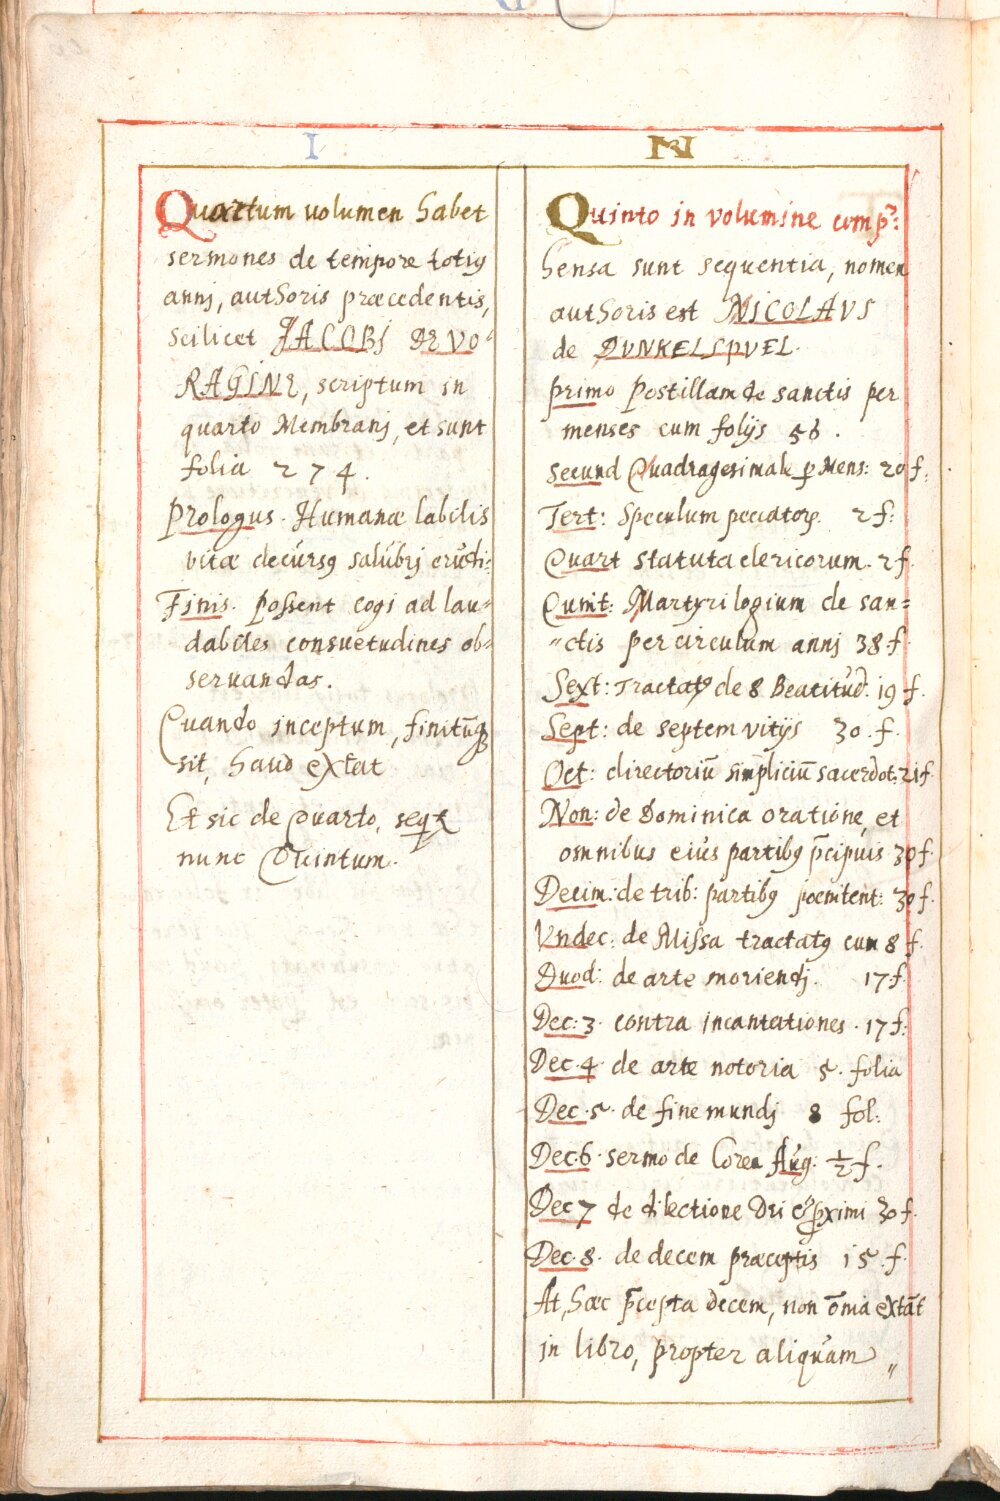 I
Quartum uolumen habet
sermones de tempore totiꝰ
annj, authoris præcedentis,
scilicet JACOBJ DE VO-
RAGINE, scriptum in
quarto Membranj, et sunt
folia 274.
Prologus. Humanæ labilis
vitæ decúrsꝰ salúbrj erúdi:
Finis. possent cogi ad lau=
dabiles consuetudines ob=
seruandas.
Quando inceptum, finitūqꝫ
sit, haud extat
Et sic de Quarto, seqr
nunc Quintum.
IN
Quinto in volumine comp̃:
hensa sunt sequentia, nomen
authoris est NICOLAVS
de DVNKELSPVEL.
primo Postillam de sanctis per
menses cum folijs 56.
secund Quadragesimale ꝑ Mens: 20 f:
Tert: Speculum peccatorꝝ. 2 f:
Quart statuta clericorum. 2 f.
Quint: Martyrilogium de san=
"ctis per circulum annj 38 f.
Sext: Tractatꝰ de 8 Beatitúd. 19 f.
Sept: de septem vitijs 30. f.
Oct: directoriū simpliciū sacerdot: 21 f.
Non: de Dominica oratione, et
omnibus eiús partibꝰ p̄cipuis 30 f.
Decim: de trib: partibꝰ poenitent: 30 f.
Undec: de Missa tractatꝰ cum 8 f.
Duod: de arte moriendj. 17 f.
Dec: 3. contra incantationes. 17 f:
Dec. 4 de arte notoria 5. folia
Dec. 5. de fine mundj 8 fol:
Dec. 6. sermo de Corea Aug: ½ f.
Dec 7 de dilectione Dei et ꝓximi 30 f.
Dec. 8. de decem præceptis 15. f.
At, hæc p̄cepta decem, non ōmia extāt
in libro, propter aliquam "